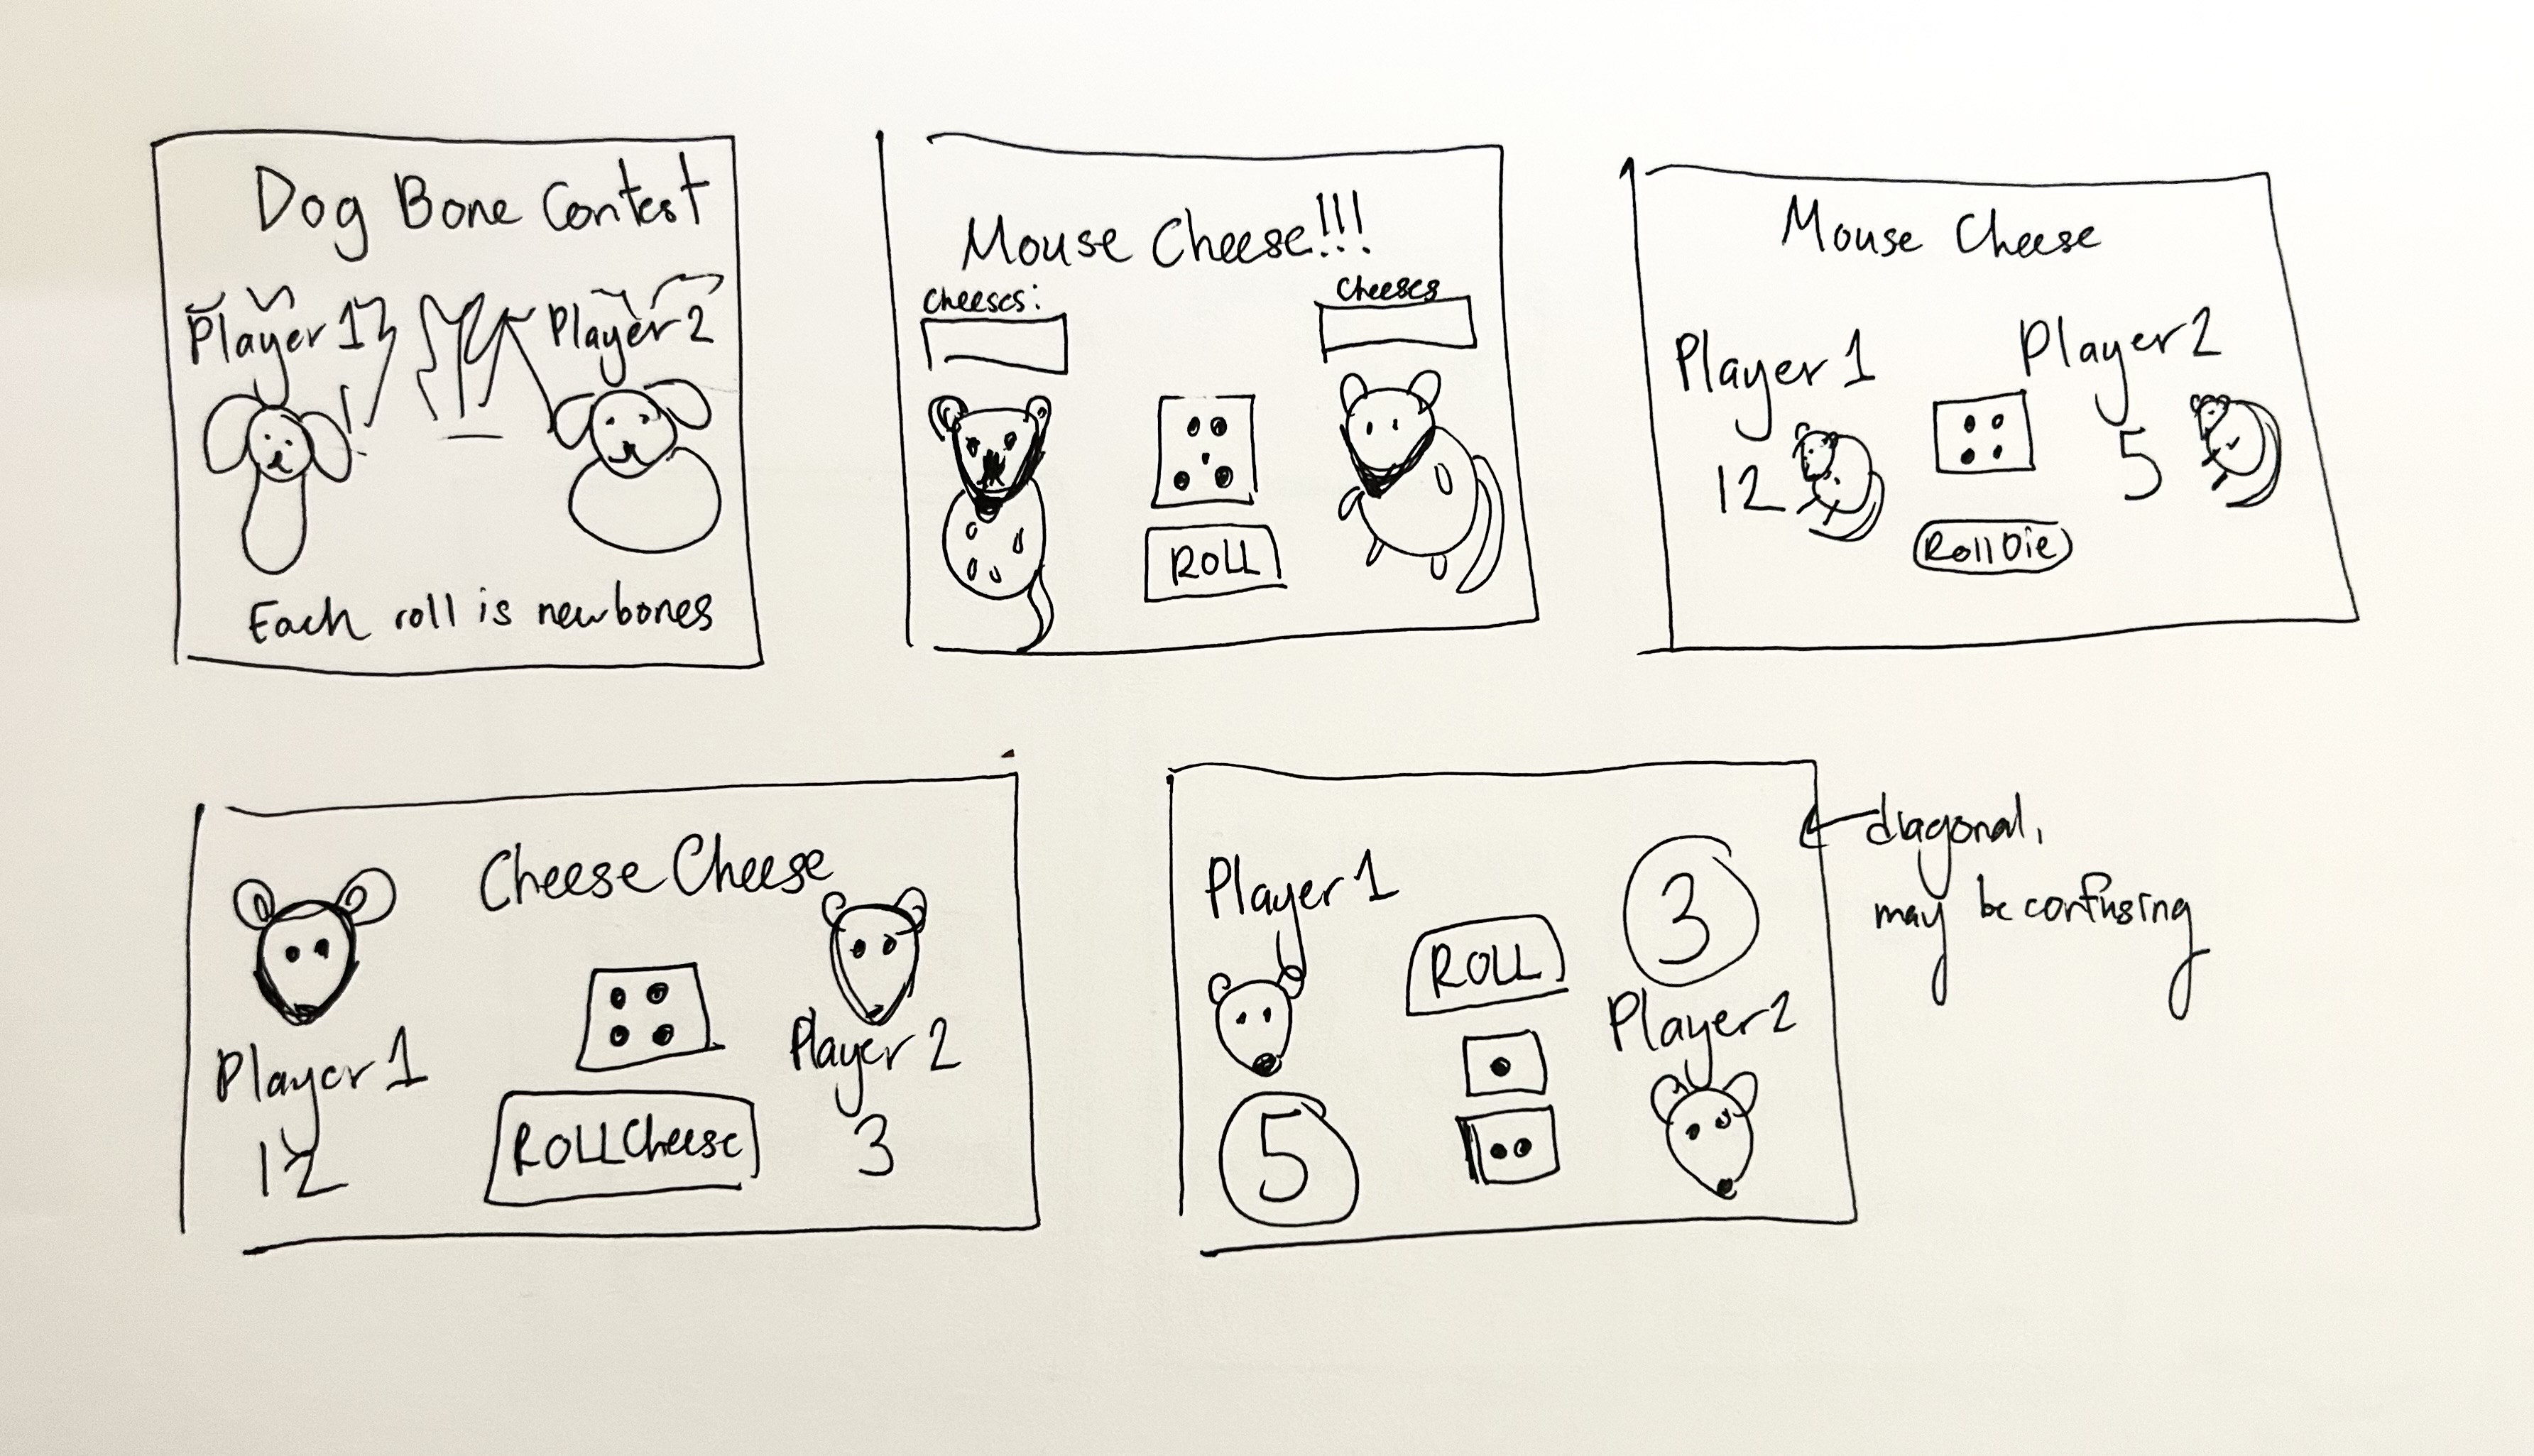 Dog Bone Contest
Player 1
Player 2
Each roll is new bones
Mouse Cheese!!!
Cheeses:
Cheeses
ROLL
Mouse Cheese
Player 1
Player 2
12
5
Roll Die
Cheese Cheese
Player 1
12
ROLL Cheese
Player 2
3
Player 1
5
ROLL
3
Player 2
diagonal,
may be confusing